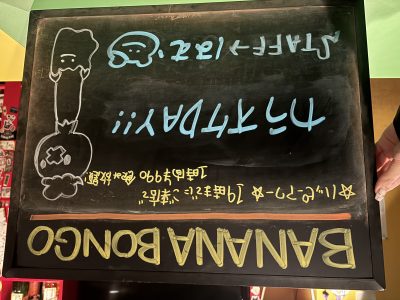 BANANA BONGO
☆ハッピーアワー☆ 19時までにご来店で
1時間¥990 飲み放題!
カラオケDAY!!
STAFF→はむ